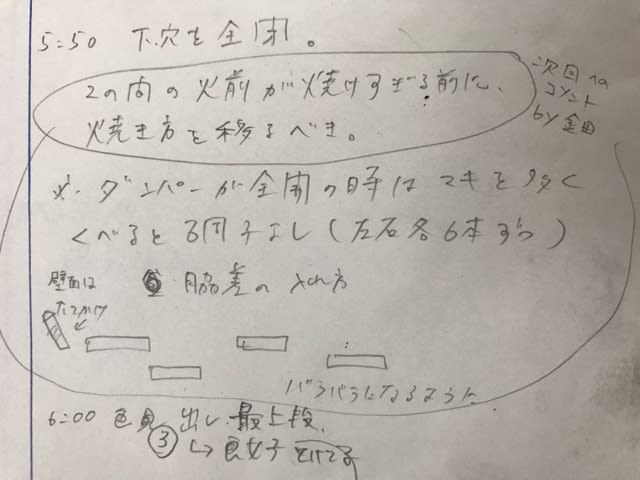 5:50 下穴も全開。
2の間の火前が焼けすぎる前に、
焼き方を移るべき。
次回への
コメント
by 金田
※・ダンパーが全開の時はマキを多く
くべると調子よし(左右各6本ずつ)
壁面は
たてかけ
脇差の入れ方
バラバラになるように
6:00 色見出し 最上段、
③ → 良好